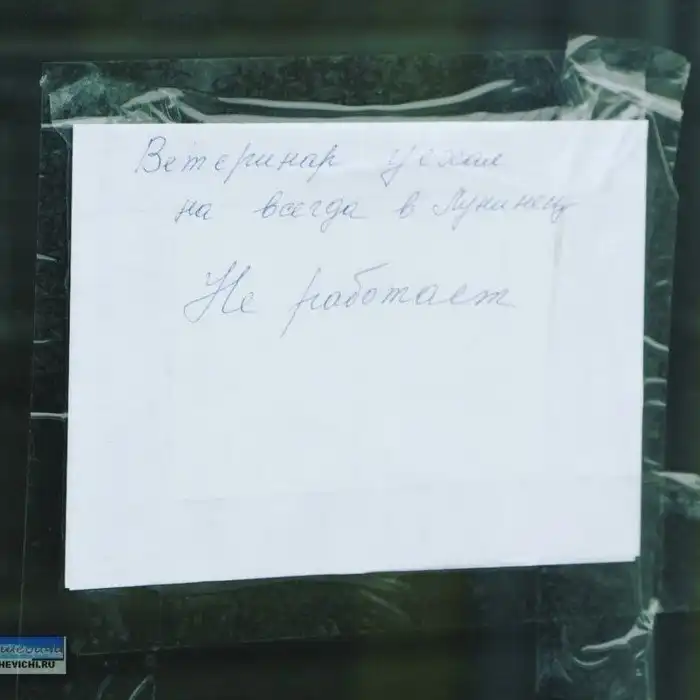 Ветеринар уехал
на всегда в Лунинец
Не работает
HEVICHI.RU